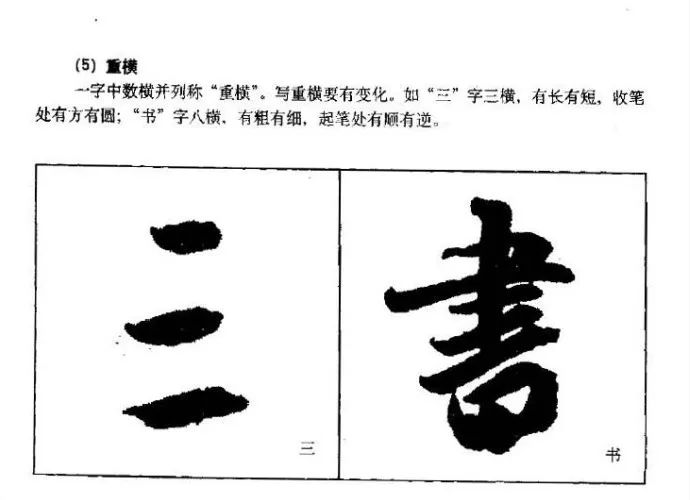 (5) 重横
一字中数横并列称“重横”。写重横要有变化。如“三”字三横，有长有短，收笔
处有方有圆；“书”字八横，有粗有细，起笔处有顺有逆。
三 書
三 书